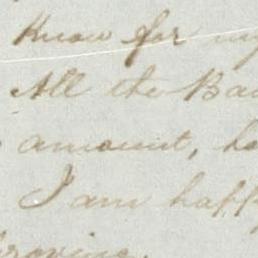 Know for my
All the Ba
amount, ha
I am happ